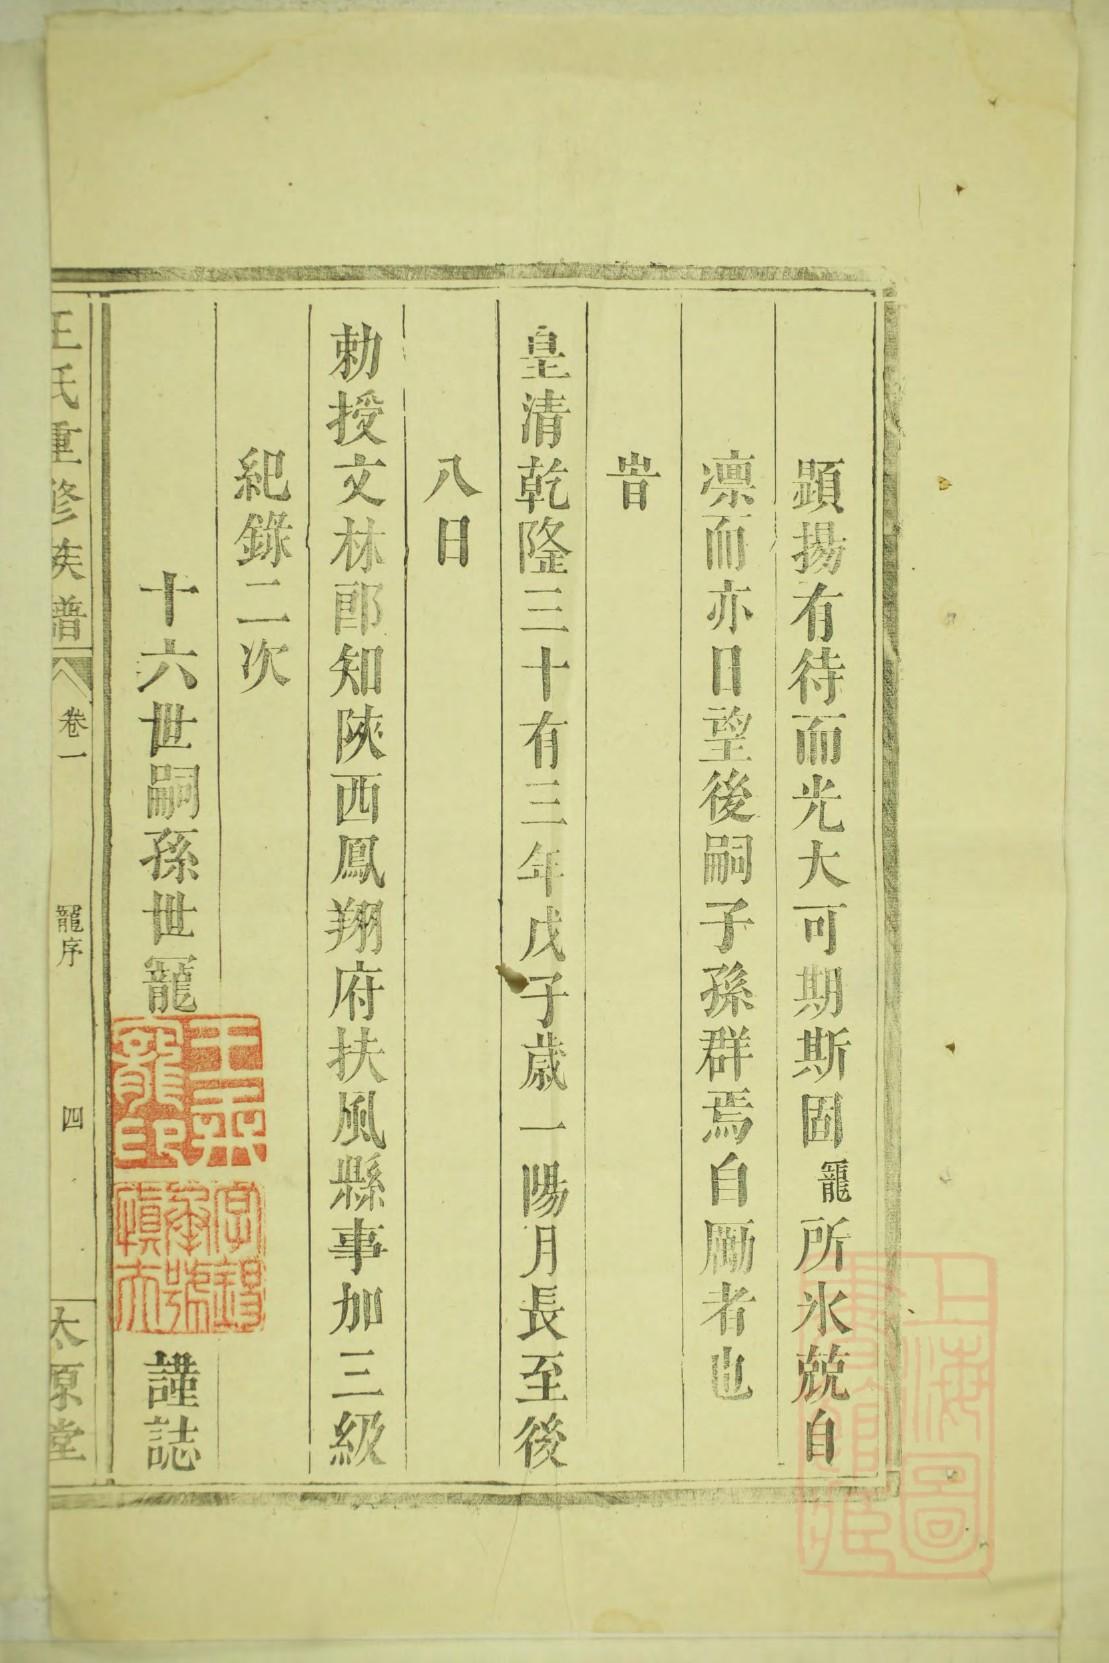 顯揚有待而光大可期斯固寵所氷兢自
凛而亦日望後嗣子孫群焉自勵者也
旹
皇清乾隆三十有三年戊子歲一陽月長至後
八日
勅授文林郎知陝西鳳翔府扶風縣事加三級
紀錄二次
十六世嗣孫世寵
謹誌
王氏重修族譜
卷一
寵序
四
太原堂
上海圖